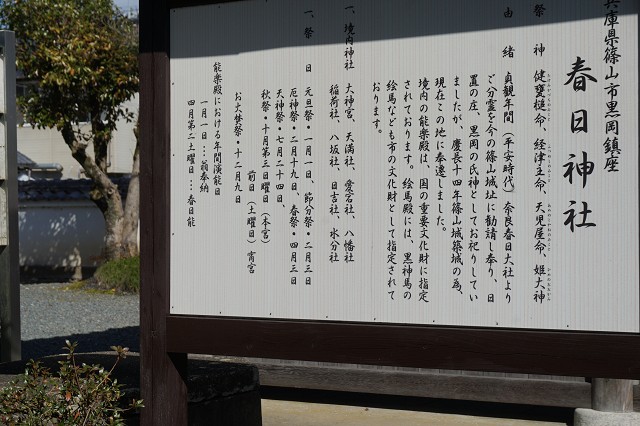 兵庫県篠山市黒岡鎮座
春日神社
祭神 健甕槌命、経津主命、天児屋命、姫大神
たけみかづちのみこと ふつぬしのみこと あめのこやねのみこと ひめのおおかみ
由緒 貞観年間（平安時代）奈良春日大社より
ご分霊を今の篠山城址に勧請し奉り、日
置の庄、黒岡の氏神としてお祀りしてい
ましたが、慶長十四年篠山城築城の為、
現在この地に奉遷しました。
境内の能楽殿は、国の重要文化財に指定
されております。絵馬殿には、黒神馬の
絵馬なども市の文化財として指定されて
おります。
一、境内神社 大神宮、天満社、愛宕社、八幡社
稲荷社、八坂社、日吉社、水分社
一、祭日 元旦祭・一月一日、節分祭・二月三日
厄神祭・二月十九日、春祭・四月三日
天神祭・七月二十四日、
秋祭・十月第三日曜日（本宮）
前日（土曜日）宵宮
お火焚祭・十二月九日
能楽殿における年間演能日
一月一日…翁奉納
四月第二土曜日…春日能